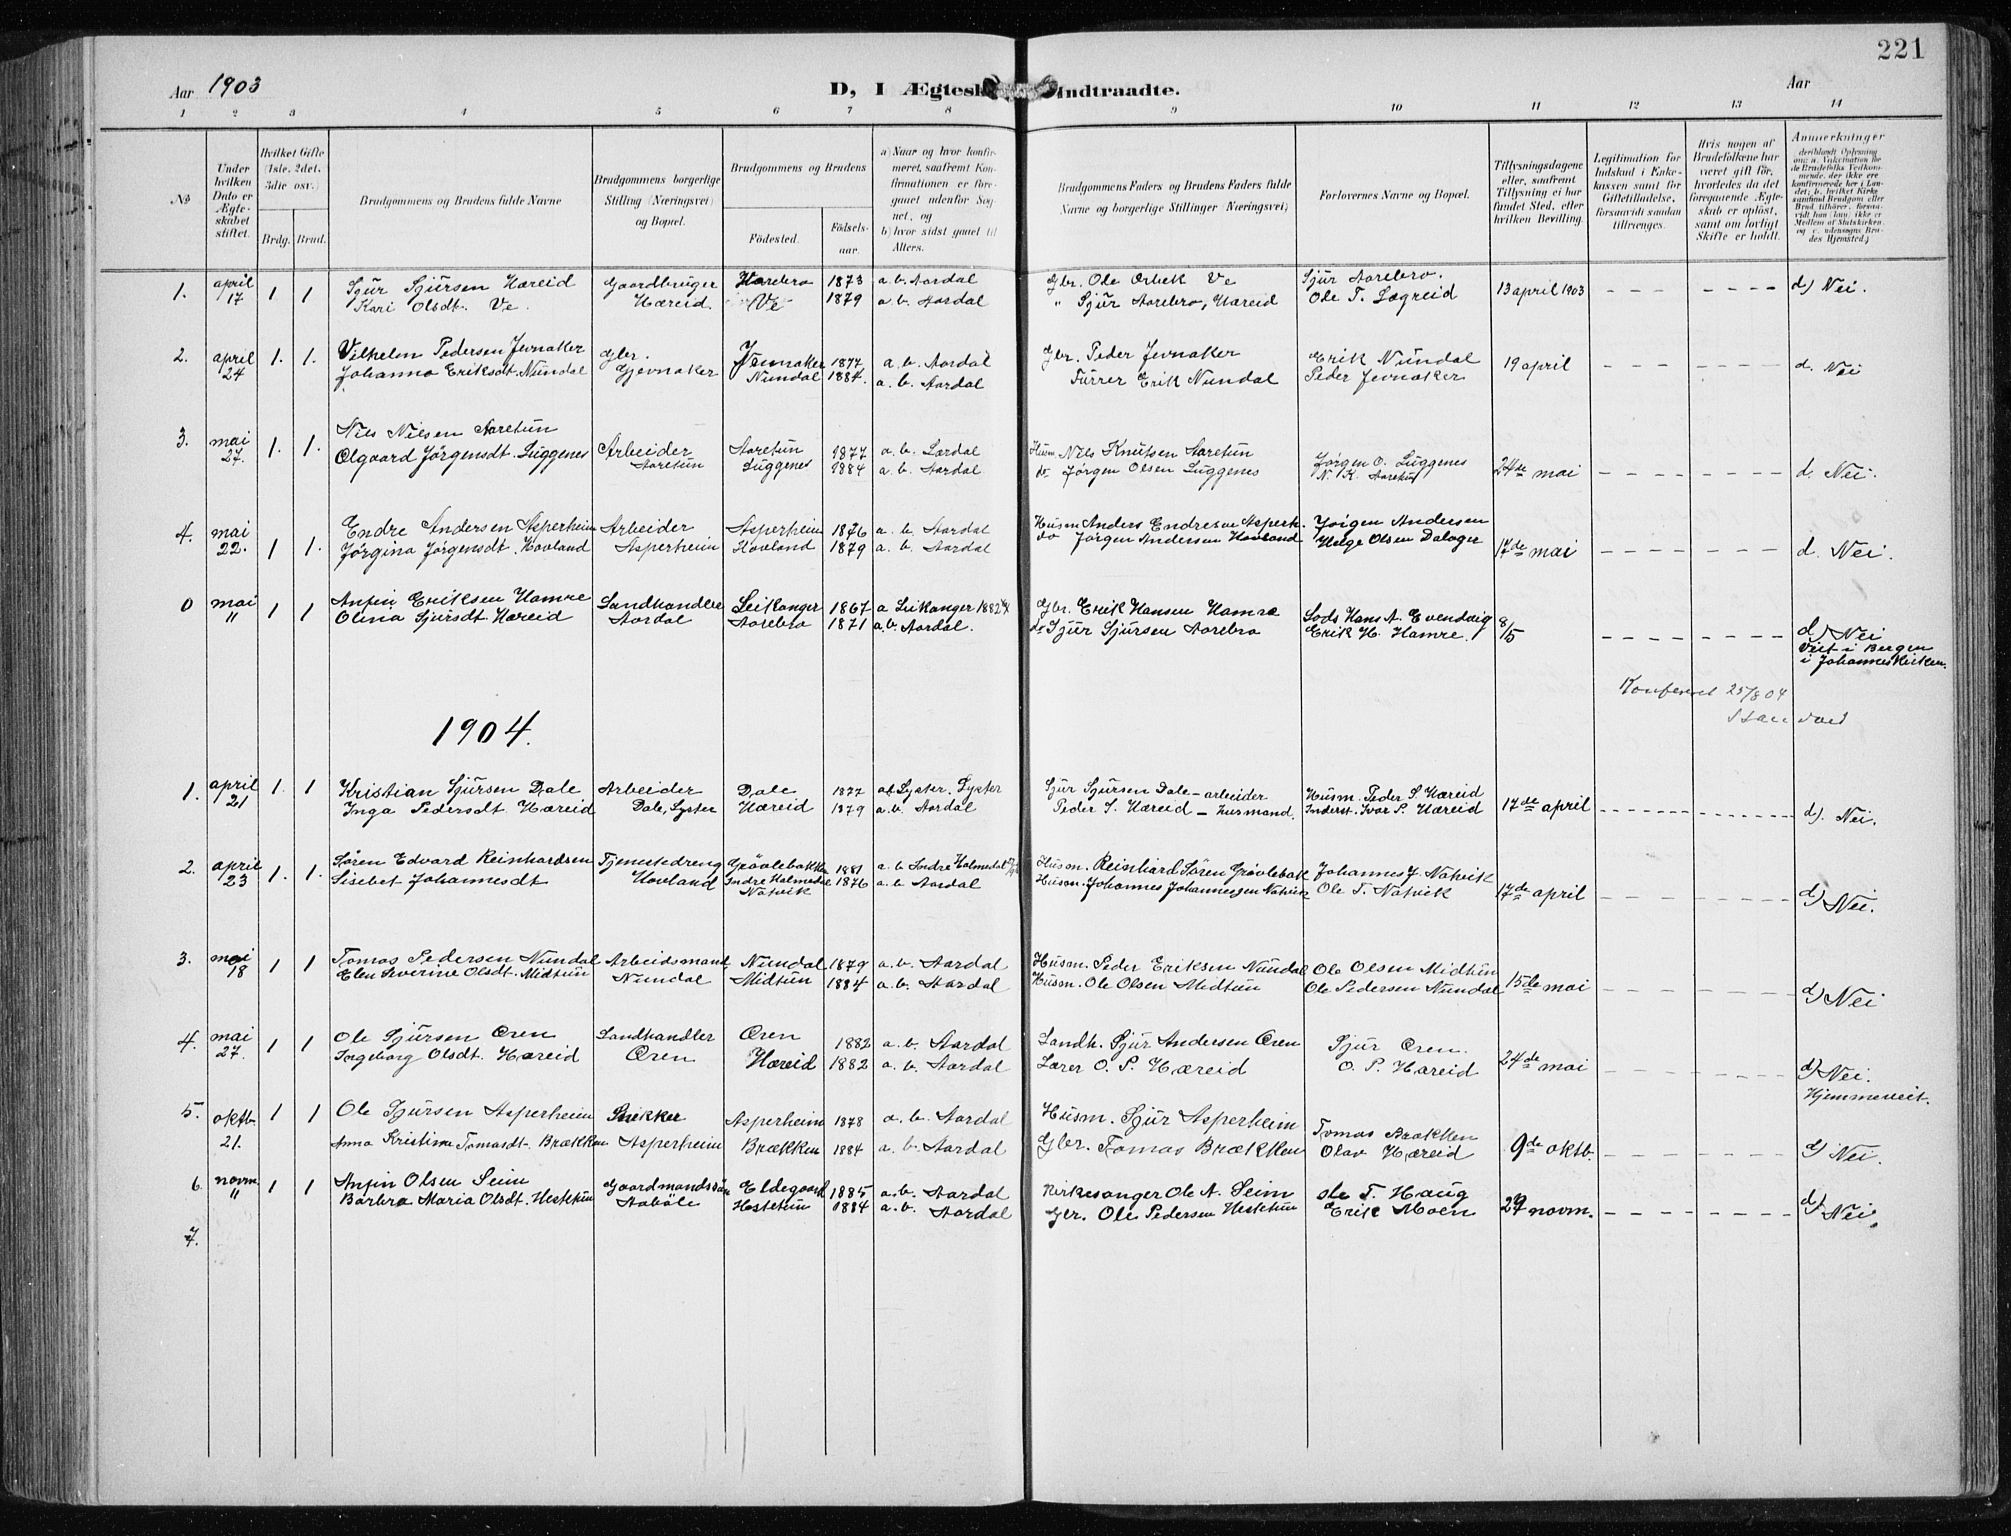 221
Aar 1903
D, I Ægtesk Indtraadte.
Aar
1 2 3 4 5 6 7 8 9 10 11 12 13 14
№
Under hvilken Dato er Ægteskabet stiftet.
Hvilket Gifte (1ste, 2det, 3die osv.)
Brdg. Brud.
Brudgommens og Brudens fulde Navne
Brudgommens borgerlige Stilling (Næringsvei) og Bopæl.
Brudgommens og Brudens
Fødested.
Fødselsaar.
a) Naar og hvor konfirmeret, saafremt Konfirmationen er foregaaet udenfor Sognet, og b) hvor sidst gaaet til Alters.
Brudgommens Faders og Brudens Faders fulde Navne og borgerlige Stillinger (Næringsvei)
Forlovernes Navne og Bopæl.
Tillysningsdagene eller, saafremt Tillysning ei har fundet Sted, efter hvilken Bevilling.
Legitimation for Indskud i Enkekassen samt for Giftetilladelse, forsaavidt saadan tiltrænges.
Hvis nogen af Brudefolkene har været gift før, hvorledes da det foregaaende Ægteskab er opløst, samt om lovligt Skifte er holdt.
Anmerkninger
1. april 17 1 1 Sjur Sjursen Hæreid Gaardbruger Aarebro 1873 a. b. Aardal Gbr. Ole Orbek Ve Sjur Aarebro. 13 april 1903 d) Nei.
Kari Olsdt. Ve. Hæreid. Ve 1879 a. b. Aardal " Sjur Aarebro, Hæreid Ole T. Lægreid
2. april 24 1. 1. Vilhelm Pedersen Jevnaker Gbr. Jevnaker 1877 a. b. Aardal Gbr. Peder Jevnaker Erik Nundal 19 april d. Nei
Johanna Eriksdt. Nundal Gjevnaker Nundal 1884. a. b. Aardal Furrer Erik Nundal Peder Jevnaker
3. mai 27. 1. 1. Nils Nilsen Aaretun Arbeider Aaretun 1877 a. b. Lardal Husm. Nils Knutsen Aaretun Jørgen O. Luggenes 24de mai d. Nei.
Olgaard Jørgensdt. Luggenes Aaretun Luggenes 1884 a. b. Aardal do Jørgen Olsen Luggenes N. K. Aaretun
4. mai 22. 1 1. Endre Andersen Asperheim Arbeider Asperheim 1876 a. b. Aardal Husm Anders Endresen Asperh. Jørgen Andersen 17de mai d. Nei.
Jørgina Jørgensdt. Hovland Asperheim Hovland 1879 a. b. Aardal do Jørgen Andersen Hovland Helge Olsen Daloger
0 mai 11 1 1 Anfin Eriksen Hamre Landhandler Leikanger 1867 a Leikanger 1882 Gbr. Erik Hansen Hamre Lods Hans A. Evendvig 8/5 d) Nei
Olina Sjursdt. Hæreid Aardal Aarebro 1871 a. b. Aardal. do Sjur Sjursen Aarebro Erik H. Hamre.
Viet i Bergen
i Johanneskirken.
Konfereret 25/8 04
1904.
1. april 21 1. 1 Kristian Sjursen Dale Arbeider Dale 1877 a b Lyster. Lyster Sjur Sjursen Dale - arbeider Husm. Peder S Hæreid 17de april d). Nei.
Inga Pedersdt. Hæreid Dale, Lyster Hæreid 1879 a. b. Aardal Peder S. Hæreid - husmand. Inderst. Ivar P. Hæreid
2. april 23 1. 1. Søren Edvard Reinhardsen Tjenestedreng Grøvlebakken 1881 a. b Indre Holmedal Husm. Reinhard Søren Grøvlebak Johannes J. Natvik 17de april d) Nei.
Sisebet Johannesdt Hovland Indre Holmedal 1876 a. b. Aardal Husm. Johannes Johannesen Natvik Ole T. Natvik
Natvik
3. mai 18 1 1 Tomas Pedersen Nundal Arbeidsmand Nundal 1879 a. b. Aardal Husm. Peder Eriksen Nundal Ole Olsen Midtun 15de mai d) Nei
Elen Severine Olsdt. Midtun Nundal Midtun 1884 a. b. Aardal Husm. Ole Olsen Midtun Ole Pedersen Nundal
4. mai 27. 1 1 Ole Sjursen Øren Landhandler Øren 1882 a. b. Aardal Landh. Sjur Andersen Øren Sjur Øren. 24de mai d) Nei.
Ingeborg Olsdt. Hæreid Øren Hæreid 1882 a. b. Aardal Lærer O. P. Hæreid O. P. Hæreid
Hjemmeviet.
5. oktb. 21. 1 1 Ole Sjursen Asperheim Snikker Asperheim 1878 a. b. Aardal Husm. Sjur Asperheim Tomas Brækken 9de oktb. d) Nei.
Anna Kristina Tomasdt. Brækken Asperheim Brækken 1884 a. b. Aardal Gbr. Tomas Brækken Olav Hæreid
6. novm. 11 1 1 Anfin Olsen Seim Gaardmandssøn Eldegaard 1885 a. b. Aardal Kirkesanger Ole A. Seim Ole T. Haug 27 novm. d) Nei.
Barbra Maria Olsdt. Hestetun Nabøle Hestetun 1884 a. b. Aardal Gbr. Ole Pedersen Hestetun Erik Moen
7.